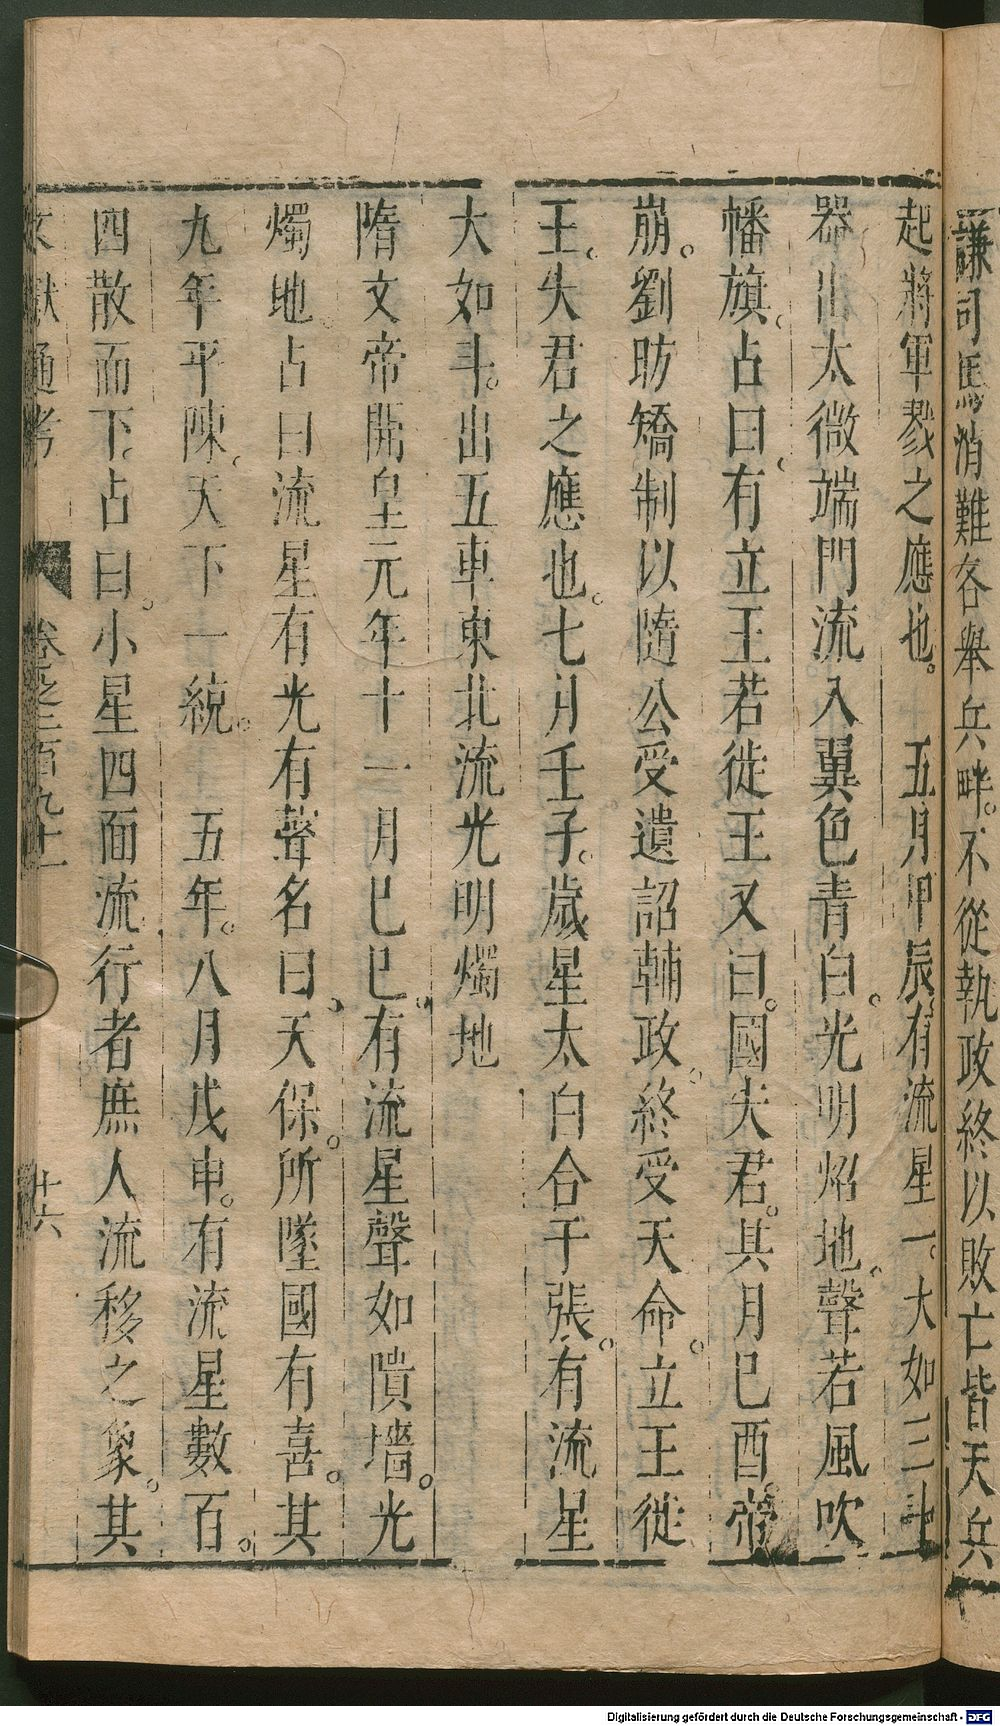 謙司馬消難各舉兵畔。不從執政終以敗亡皆天兵
起將軍戮之應也。　五月甲辰有流星一。大如三斗
器出太微端門流入翼色青白。光明炤地。聲若風吹
幡旗。占曰。有立王若徙王又曰。國失君。其月巳酉。帝
崩。劉昉矯制以隨公受遺詔輔政。終受天命。立王徙
王。失君之應也。七月壬子。歲星太白合于張。有流星
大如斗。出五車東北流光明燭地
隋文帝開皇元年十一月巳巳。有流星聲如隤墻。光
燭地占曰流星有光有聲名曰天保。所墜國有喜。其
九年平陳。天下一統。　五年。八月戊申。有流星數百。
四散而下。占曰。小星四面流行者庶人流移之象。其
文獻通考　卷之二百九十一　廿六
Digitalisierung gefördert durch die Deutsche Forschungsgemeinschaft - DFG